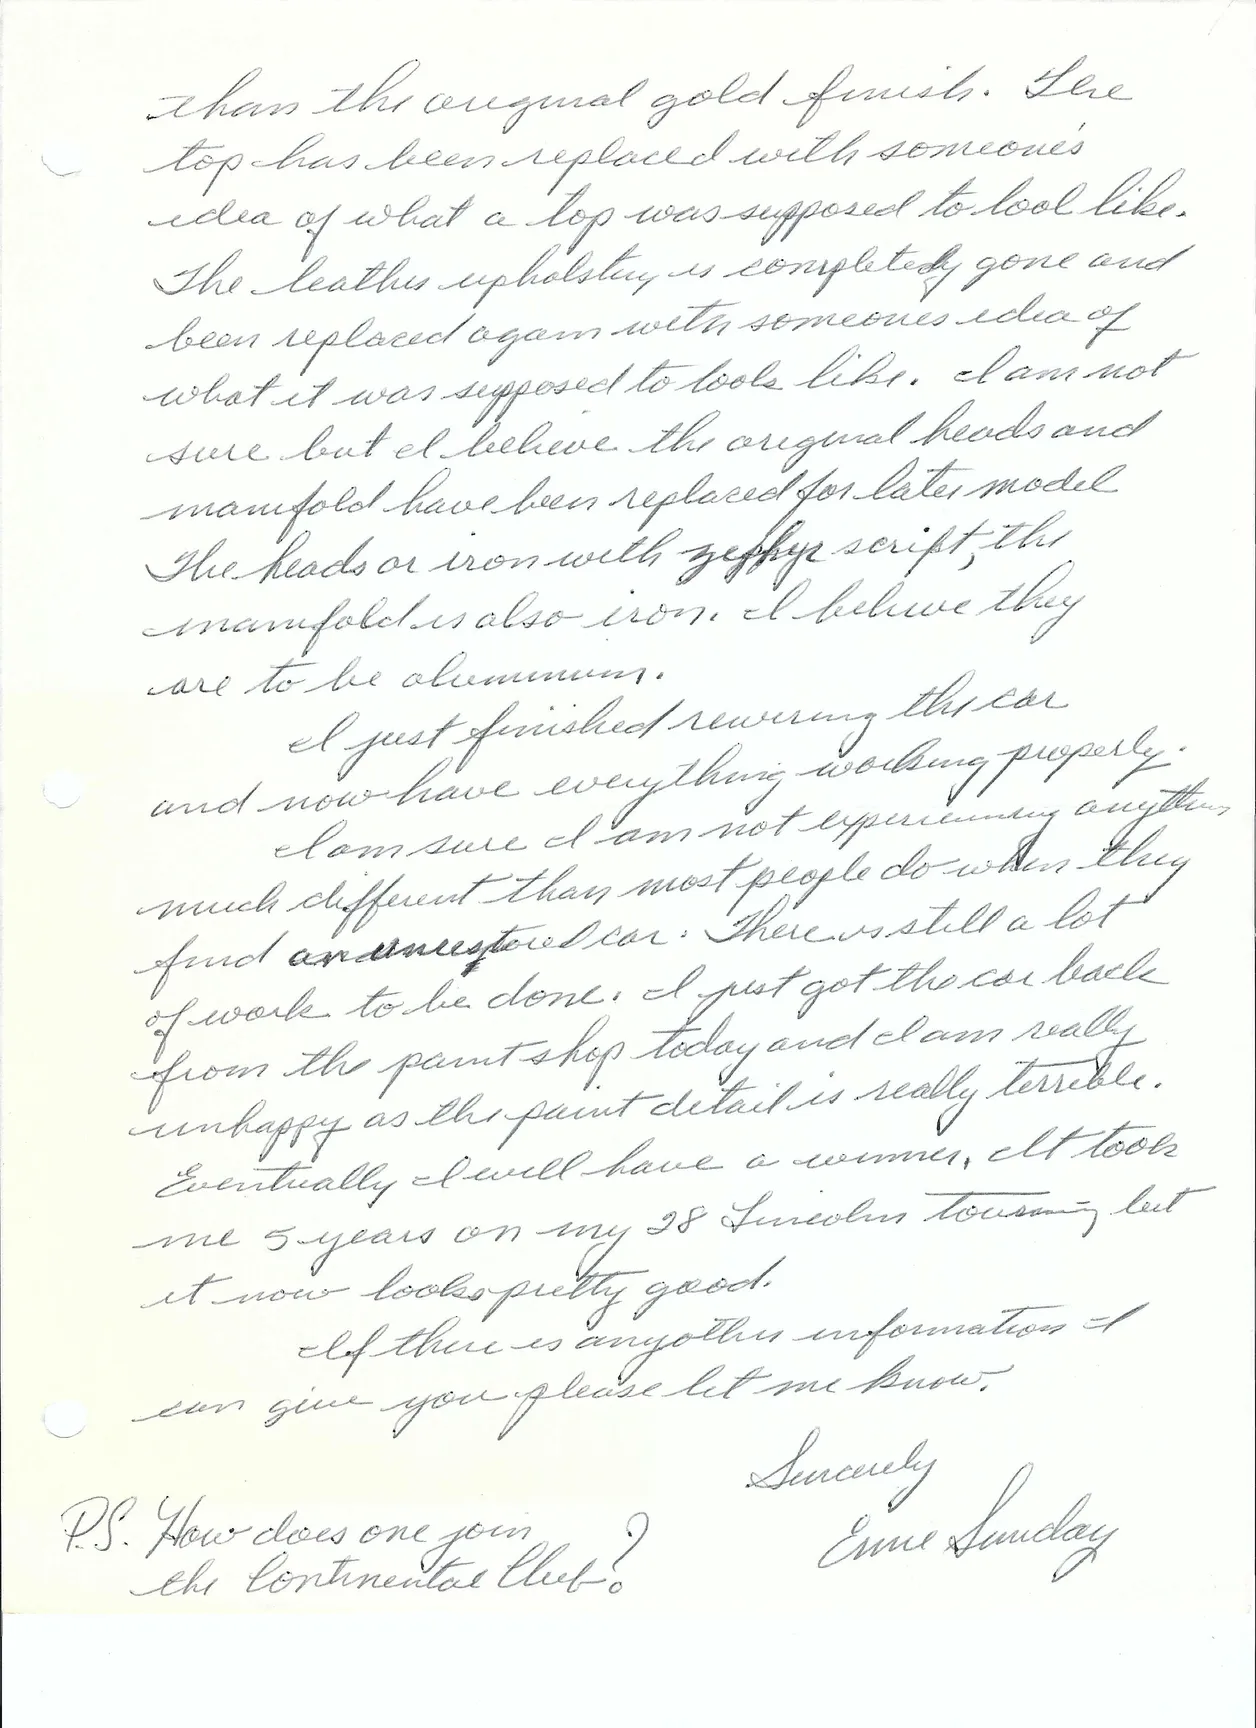 than the original gold finish. The
top has been replaced with someone's
idea of what a top was supposed to look like.
The leather upholstry is completely gone and
been replaced again with someones idea of
what it was supposed to look like. I am not
sure but I believe the original heads and
manifold have been replaced for later model
The heads or iron with zephyr script, the
manifold is also iron. I believe they
are to be aluminum.
I just finished rewiring the car
and now have everything working properly.
I am sure I am not experiencing anything
much different than most people do when they
find an unrestored car. There is still a lot
of work to be done. I just got the car back
from the paint shop today and I am really
unhappy as the paint detail is really terrible.
Eventually I will have a winner. It took
me 5 years on my 28 Lincoln touring but
it now looks pretty good.
If there is any other information I
can give you please let me know.
Sincerely
Ernie Sunday
P.S. How does one join
the Continental Club?